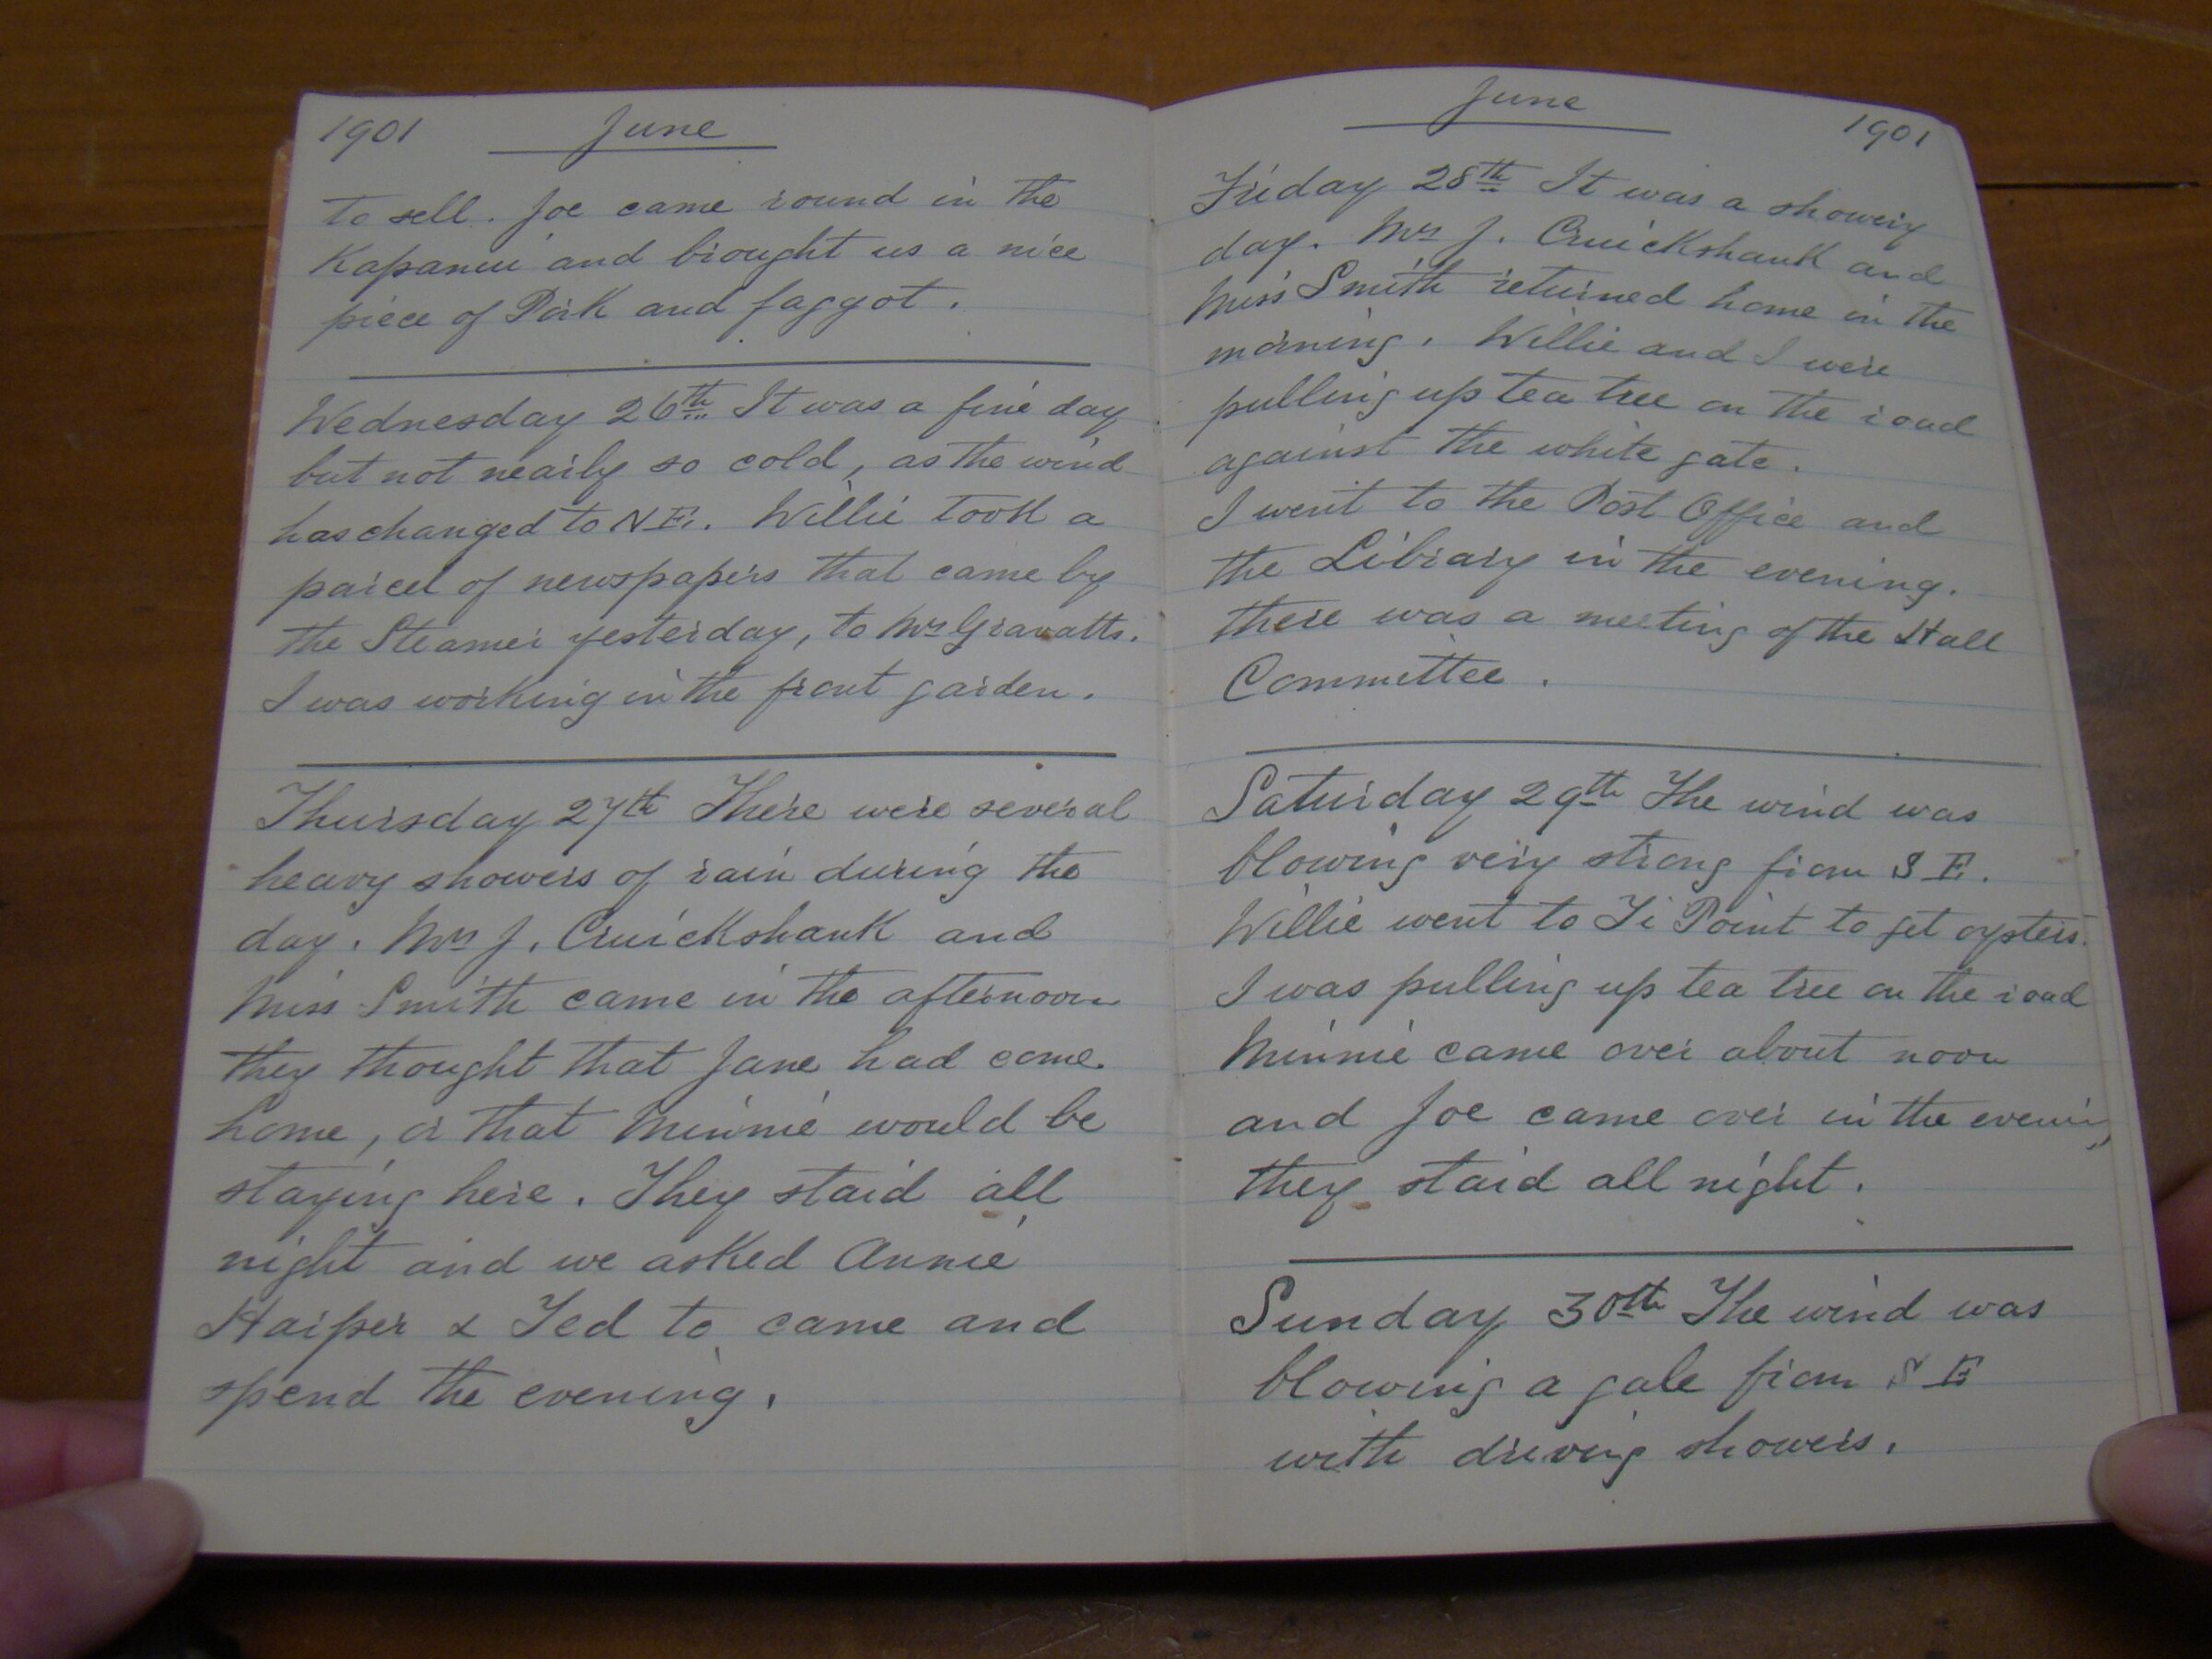 1901 June
to sell. Joe came round in the
Kapanui and brought us a nice
piece of Pork and faggot.
Wednesday 26th It was a fine day
but not nearly so cold, as the wind
has changed to N E. Willie took a
parcel of newspapers that came by
the Steamer yesterday, to Mrs Gravatts.
I was working in the front garden.
Thursday 27th There were several
heavy showers of rain during the
day. Mrs J. Cruickshank and
Miss Smith came in the afternoon
they thought that Jane had come
home, or that Minnie would be
staying here. They staid all
night and we asked Annie
Harper & Ted to came and
spend the evening.
June 1901
Friday 28th It was a showery
day. Mrs J. Cruickshank and
Miss Smith returned home in the
morning. Willie and I were
pulling up tea tree on the road
against the white gate.
I went to the Post Office and
the Library in the evening.
there was a meeting of the Hall
Committee.
Saturday 29th The wind was
blowing very strong from S E.
Willie went to Ti Point to get oysters.
I was pulling up tea tree on the road
Minnie came over about noon
and Joe came over in the evening
they staid all night.
Sunday 30th The wind was
blowing a gale from S E
with driving showers.